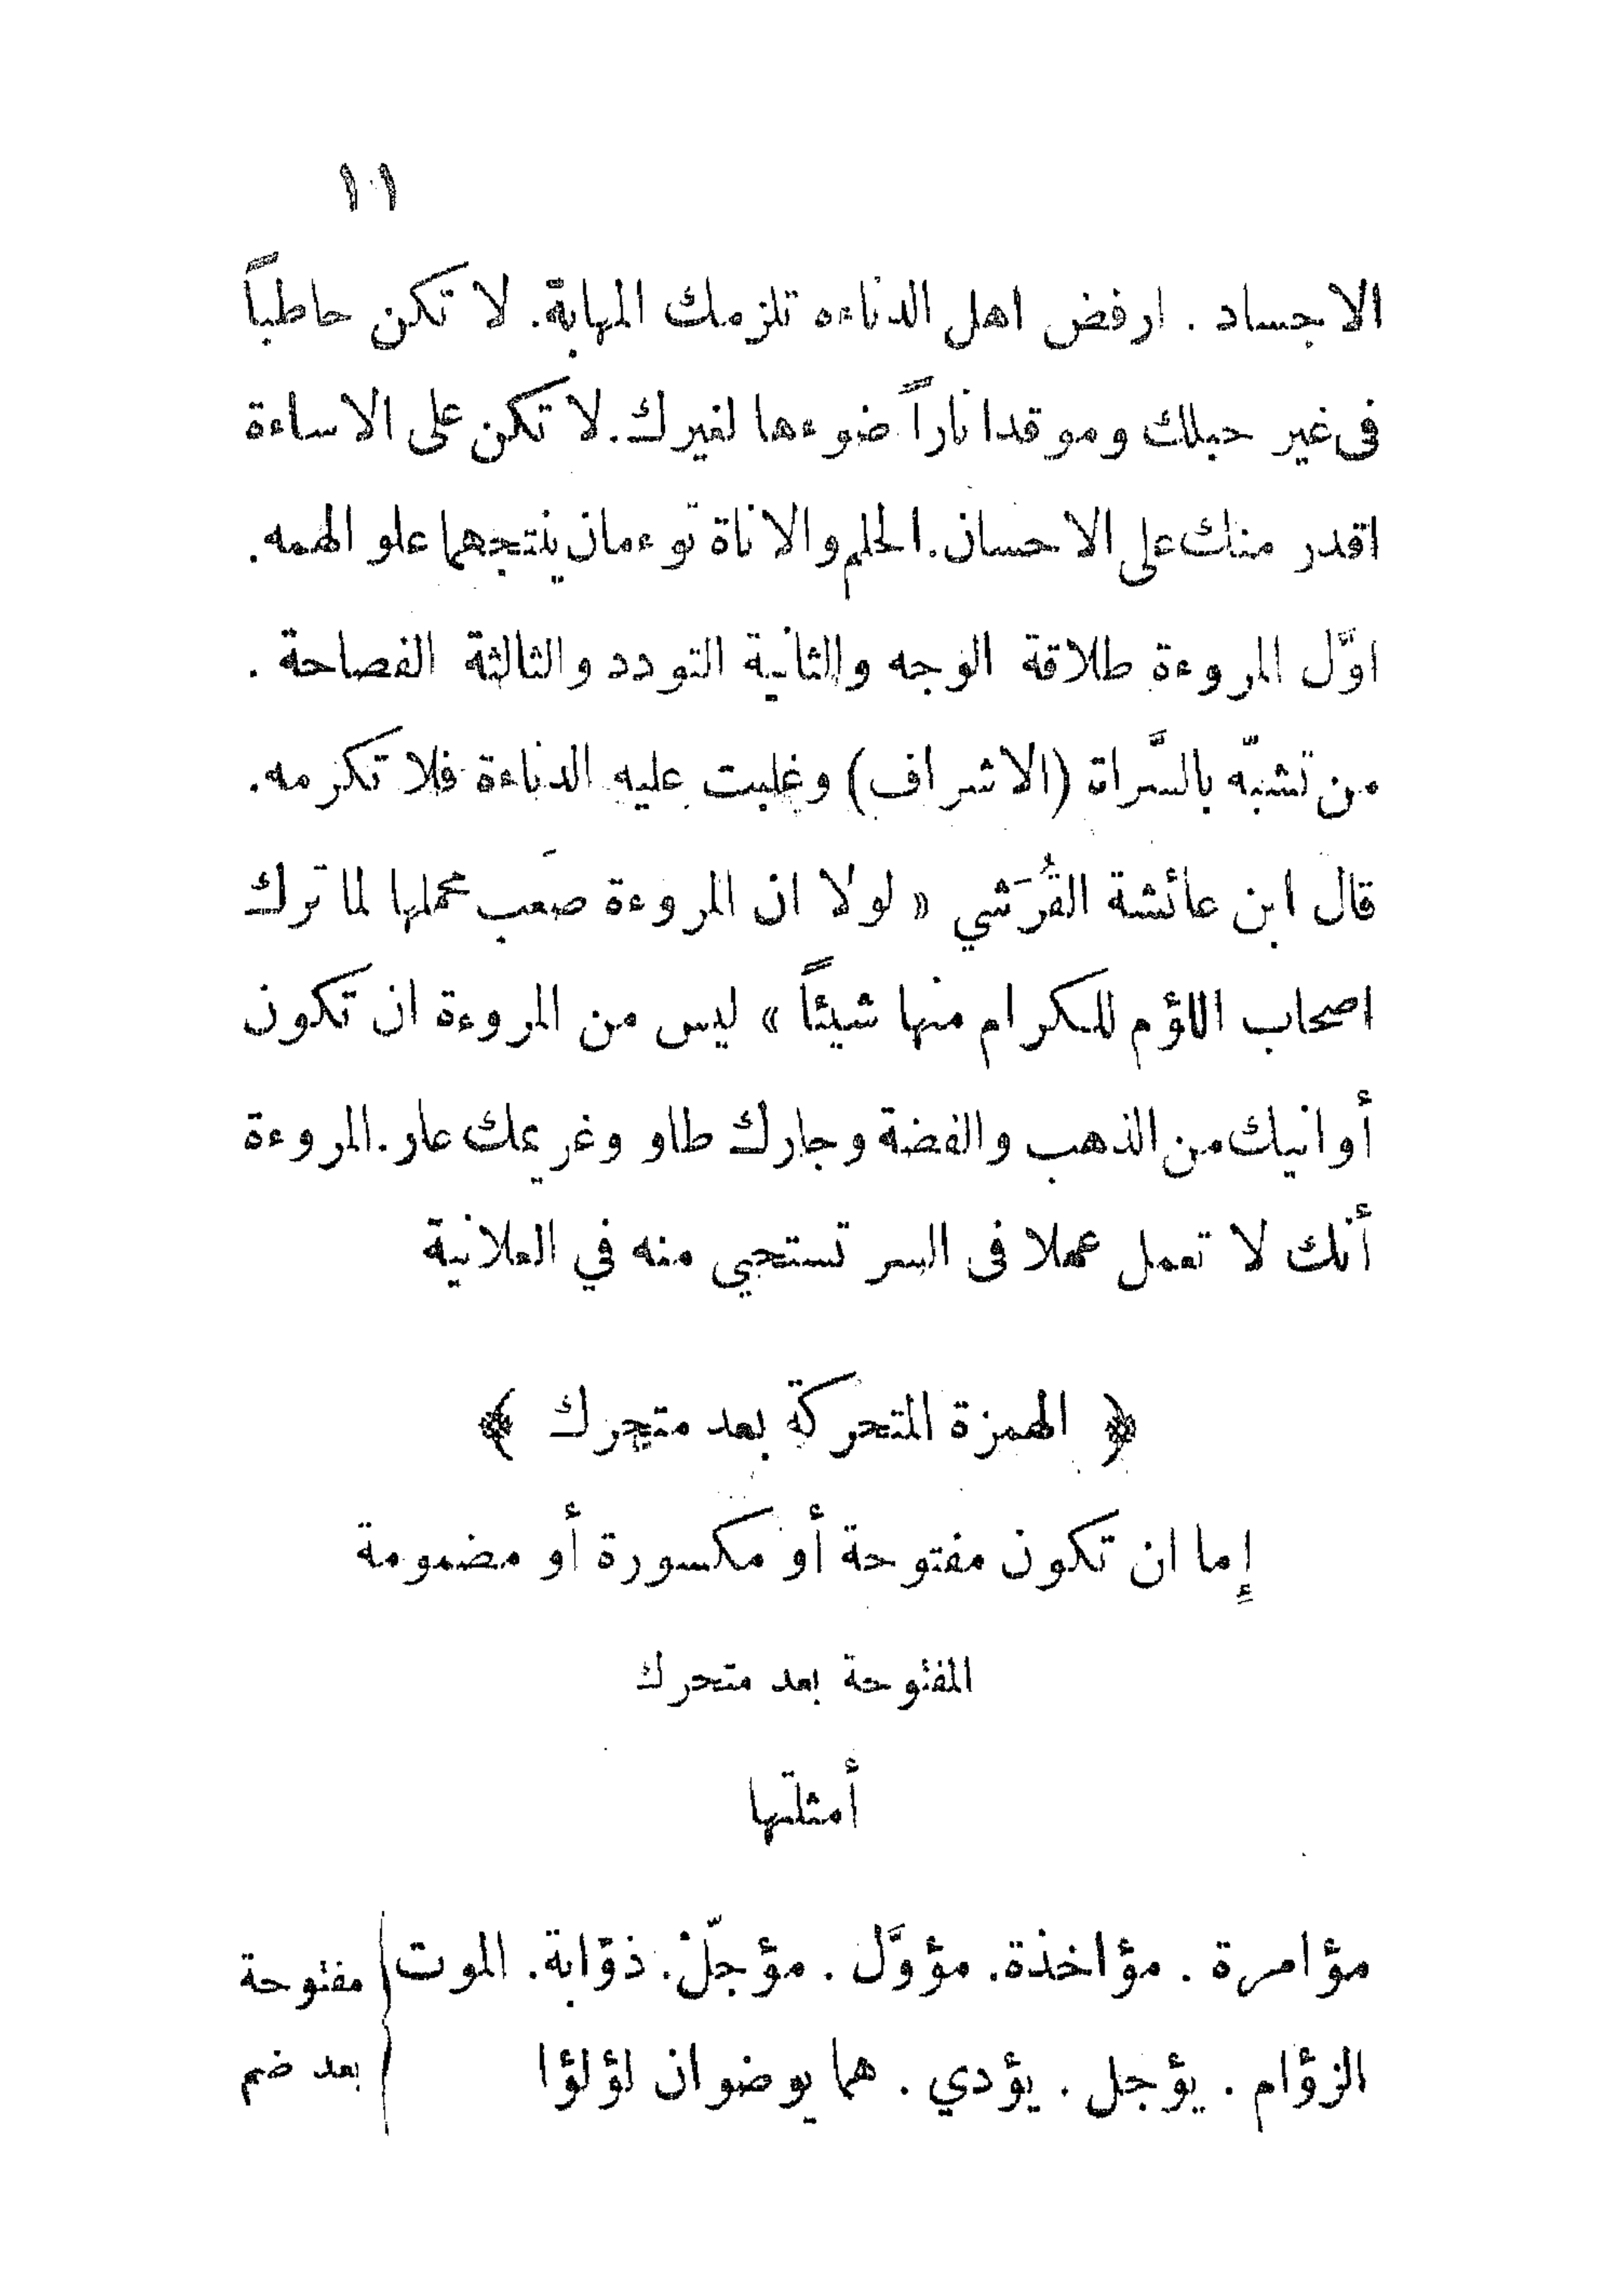 ١١
الاجساد . ارفض اهل الدناءه تلزمك المهابة. لا تكن حاطباً
فى غير حبلك وموقدا ناراً ضوءها لغيرك. لا تكن على الاساءة
اقدر منك على الاحسان. الحلم والاناة توءمان ينتجهما علو الهمه.
اوّل المروءة طلاقة الوجه والثانية التودد والثالثة الفصاحة .
من تشبّه بالسَّراة (الاشراف) وغلبت عليه الدناءة فلا تكرمه.
قال ابن عائشة القُرَشي « لولا ان المروءة صَعب محملها لما ترك
اصحاب اللؤم للكرام منها شيئاً » ليس من المروءة ان تكون
أوانيك من الذهب والفضة وجارك طاو وغريمك عار. المروءة
أنك لا تعمل عملا فى السر تستحيي منه في العلانية
﴿ الهمزة المتحركة بعد متحرك ﴾
إما ان تكون مفتوحة أو مكسورة أو مضمومة
المفتوحة بعد متحرك
أمثلتها
مؤامرة . مؤاخذة. مؤوَّل . مؤجلّ. ذؤابة. الموت
الزؤام . يؤجل . يؤدي . هما يوضوان لؤلؤا
مفتوحة
بعد ضم